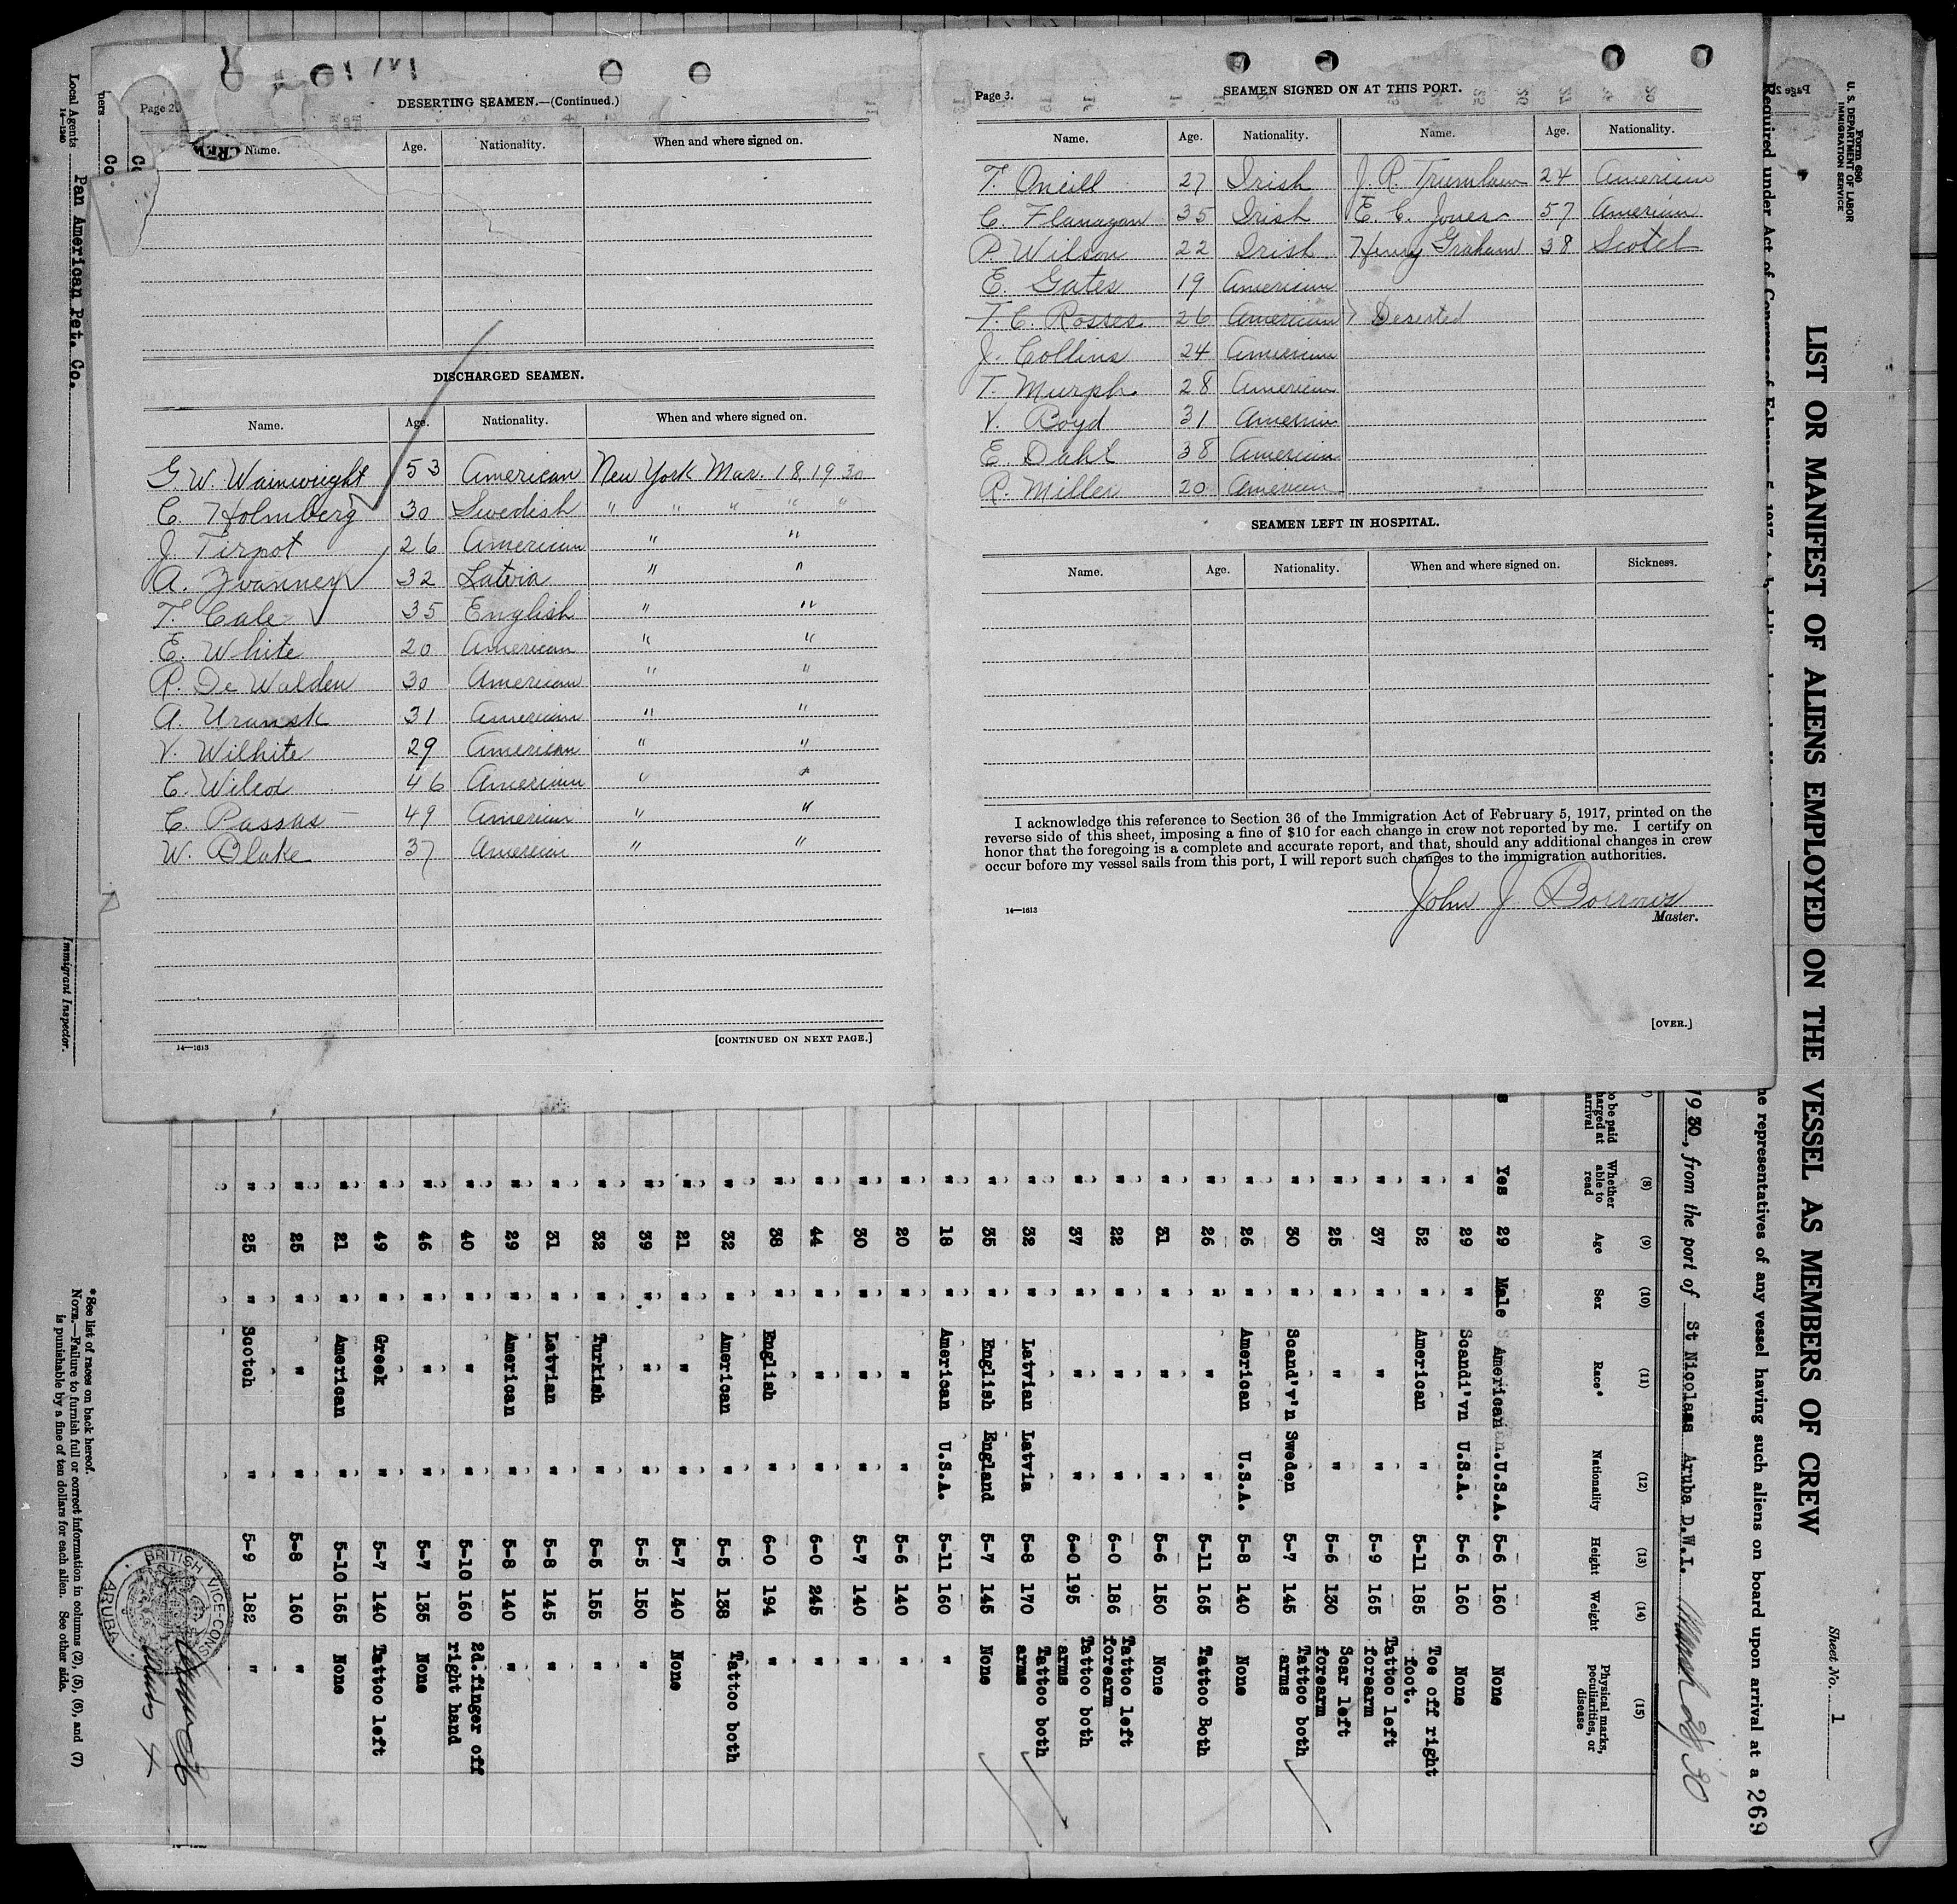 Page 2.
DESERTING SEAMEN.—(Continued.)
CREW
Name. Age. Nationality. When and where signed on.
DISCHARGED SEAMEN.
Name. Age. Nationality. When and where signed on.
G. W. Wainwright 53 American New York Mar. 18, 1930
C Holmberg 30 Swedish " " " " "
J. Tirpot 26 American " "
A. Zvanney 32 Latvia " "
T. Cale 35 English " "
E. White 20 American " "
R. De Walden 30 American " "
A. Uransk 31 American " "
V. Wilhite 29 American " "
C. Wilcox 46 American " "
C. Passas 49 American " "
W. Blake 37 American " "
[CONTINUED ON NEXT PAGE.]
14—1613
Page 3.
SEAMEN SIGNED ON AT THIS PORT.
Name. Age. Nationality. Name. Age. Nationality.
T. Oneill 27 Irish J. R. 24 American
C. Flanagan 35 Irish E. C. Jones 57 American
P. Wilson 22 Irish Henry Graham 38 Scotch
E. Gates 19 American
T. C. Rosses 26 American Deserted
J. Collins 24 American
T. Murph 28 American
V. Boyd 31 American
E. Dahl 38 American
R. Miller 20 American
SEAMEN LEFT IN HOSPITAL.
Name. Age. Nationality. When and where signed on. Sickness.
I acknowledge this reference to Section 36 of the Immigration Act of February 5, 1917, printed on the
reverse side of this sheet, imposing a fine of $10 for each change in crew not reported by me. I certify on
honor that the foregoing is a complete and accurate report, and that, should any additional changes in crew
occur before my vessel sails from this port, I will report such changes to the immigration authorities.
John J
14—1613
Master.
[OVER.]
Form 680
U. S. DEPARTMENT OF LABOR
IMMIGRATION SERVICE
Page 2
Sheet No. 1
LIST OR MANIFEST OF ALIENS EMPLOYED ON THE VESSEL AS MEMBERS OF CREW
Required under Act of Congress of February 5, 1917,
he representatives of any vessel having such aliens on board upon arrival at a 269
1930, from the port of St Nicolaas Aruba D.W.I. March 30
o be paid harged at arrival (8) Whether able to read (9) Age (10) Sex (11) Race* (12) Nationality (13) Height (14) Weight (15) Physical marks, peculiarities, or disease
s Yes 29 Male American U.S.A. 5-6 160 None
" 29 " Scandi'vn U.S.A. 5-6 160 None
" 52 " American " 5-11 185 Toe off right foot.
" 37 " " " 5-9 165 Tattoo left forearm
" 25 " " " 5-6 130 Scar left forearm
" 30 " Scand'v'n Sweden 5-7 145 Tattoo both arms
" 26 " American U.S.A. 5-8 140 None
" 26 " " " 5-11 165 Tattoo Both
" 31 " " " 5-6 150 None
" 22 " " " 6-0 186 Tattoo left forearm
" 37 " " " 6-0 195 Tattoo both arms
" 32 " Latvian Latvia 5-8 170 Tattoo both arms
" 35 " English England 5-7 145 None
" 18 " American U.S.A. 5-11 160 "
" 20 " " " 5-6 140 "
" 30 " " " 5-7 140 "
" 44 " " " 6-0 245 "
" 38 " English " 6-0 194 "
" 32 " American " 5-5 138 Tattoo both
" 21 " " " 5-7 140 None
" 39 " " " 5-5 150 "
" 32 " Turkish " 5-5 155 "
" 31 " Latvian " 5-8 145 "
" 29 " American " 5-8 140 "
" 40 " " " 5-10 160 2d.finger off right hand
" 46 " " " 5-7 135 None
" 49 " Greek " 5-7 140 Tattoo left
" 21 " American " 5-10 165 None
" 25 " " " 5-8 160 "
" 25 " Scotch " 5-9 182 "
*See list of races on back hereof.
NOTE.—Failure to furnish full or correct information in columns (2), (5), (6), and (7)
is punishable by a fine of ten dollars for each alien. See other side.
BRITISH VICE-CONS
ARUBA
Local Agents Pan American Pet. Co.
14—1240
Immigrant Inspector.
ners
Co